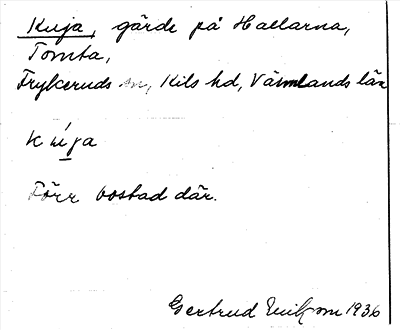 Kuja, gärde på Hallarna,
Tomta,
Frykeruds sn, Kils hd, Värmlands län
kúja
Förr bostad där.
Gertrud 1936